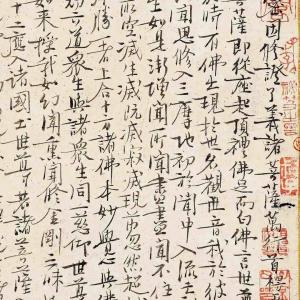 因修證了義諸菩薩萬行首楞
菩薩即從座起頂禮佛足而白佛言世尊
於時有佛出現於世名觀世音我於彼
聞思修入三摩地初於聞中入流亡
生如是漸增聞所聞盡盡聞不住
所空滅生滅既滅寂滅現前忽然
勝一者上合十方諸佛本妙覺心與佛
切六道衆生與諸衆生同一悲仰世尊
如來授我如幻聞薰聞修金剛三昧
十二應入諸國土世尊若諸菩薩